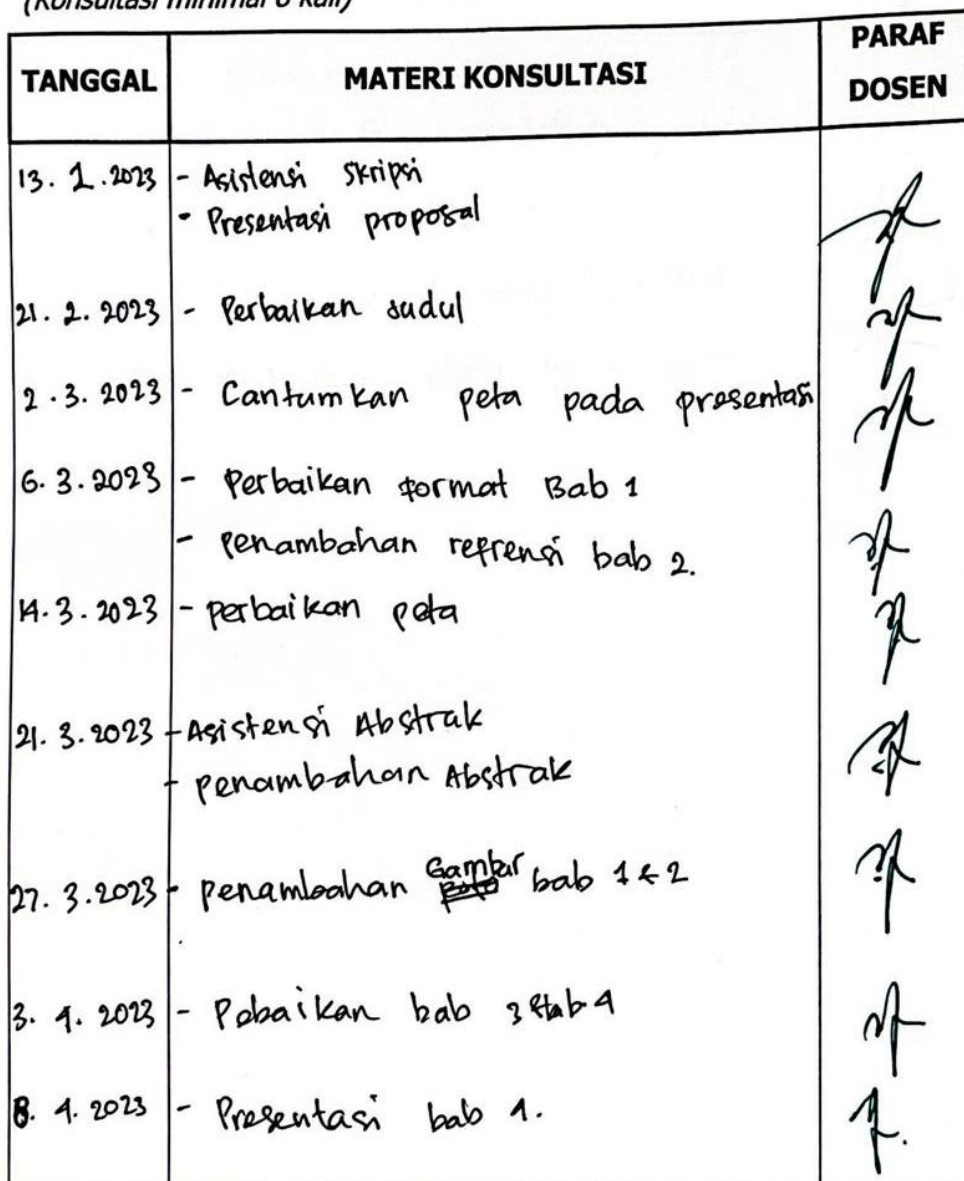 (Konsultasi minimal 8 kali)
TANGGAL MATERI KONSULTASI PARAF DOSEN
13. 1. 2023 - Asistensi Skripsi
- Presentasi proposal
21. 2. 2023 - Perbaikan Judul
2. 3. 2023 - Cantumkan peta pada presentasi
6. 3. 2023 - Perbaikan format Bab 1
- penambahan refrensi bab 2.
14. 3. 2023 - perbaikan peta
21. 3. 2023 - Asistensi Abstrak
- penambahan Abstrak
27. 3. 2023 - penambahan Gambar bab 1 & 2
3. 4. 2023 - Pebaikan bab 3 & bab 4
8. 4. 2023 - Presentasi bab 4.